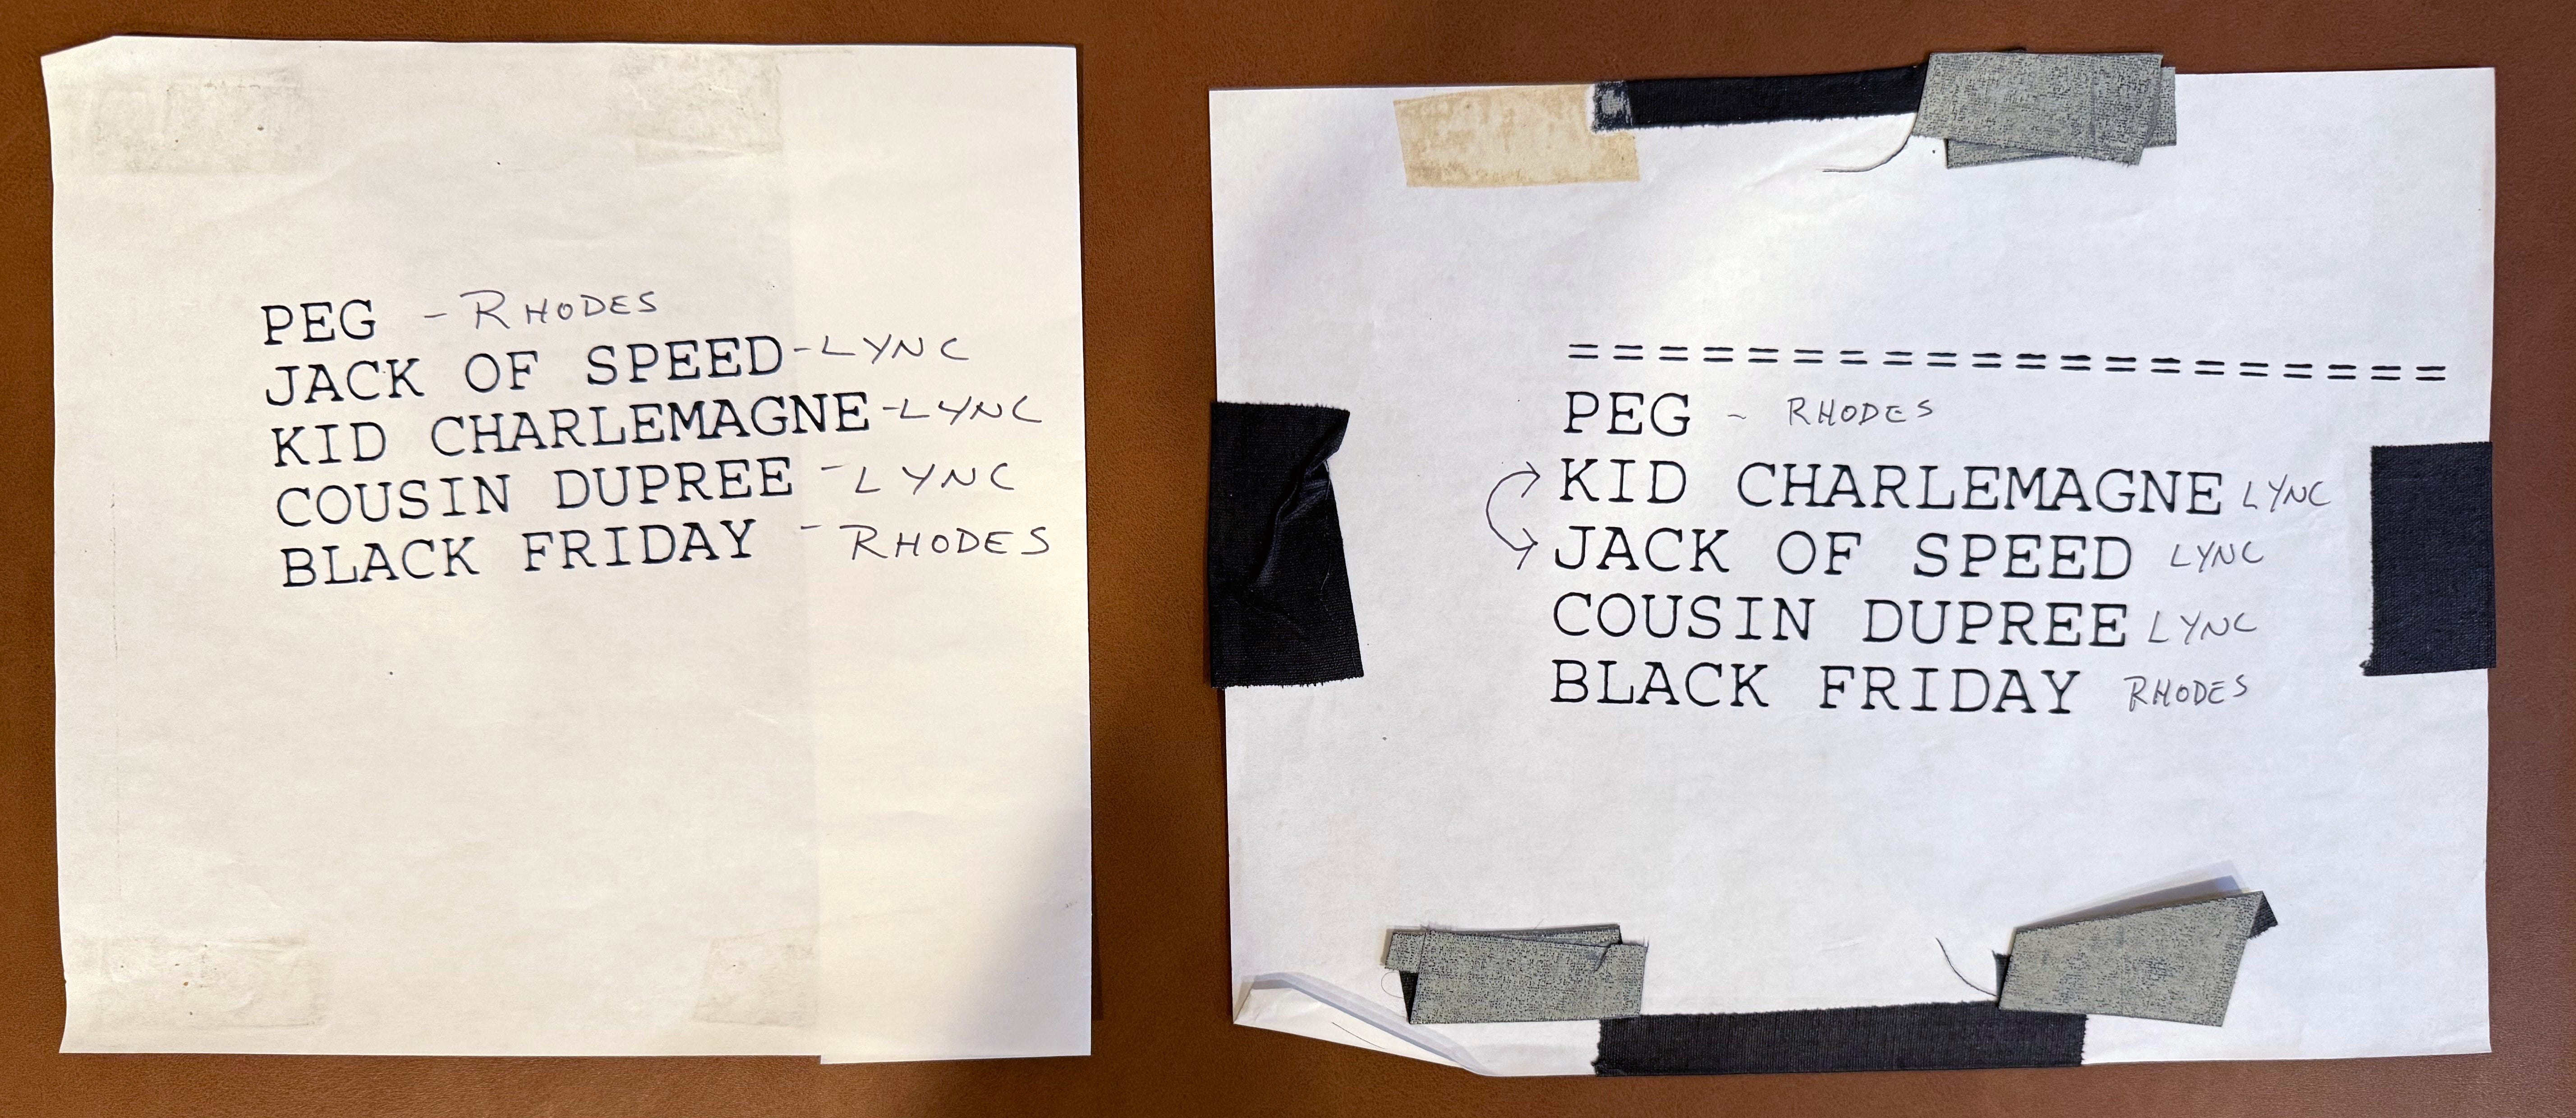 PEG - RHODES
JACK OF SPEED - LYNC
KID CHARLEMAGNE - LYNC
COUSIN DUPREE - LYNC
BLACK FRIDAY - RHODES
====================
PEG - RHODES
KID CHARLEMAGNE LYNC
JACK OF SPEED LYNC
COUSIN DUPREE LYNC
BLACK FRIDAY RHODES